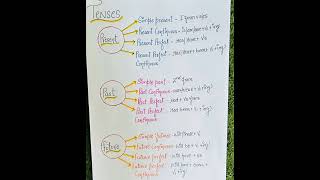 TENSES
Present
Simple present - I form + s/es
Present Continuous - is/am/are + V1 + ing
Present Perfect - has/have + V3
Present Perfect Continuous - has/have + been + V1 + ing
Past
Simple past - 2nd form
Past Continuous - was/were + V1 + ing
Past Perfect - had + V3 form
Past Perfect Continuous - had + been + V1 + ing
Future
Simple future - will/shall + V1
Future Continuous - will be + V1 + ing
Future perfect - will have + V3
Future perfect Continuous - will have + been + V1 + ing